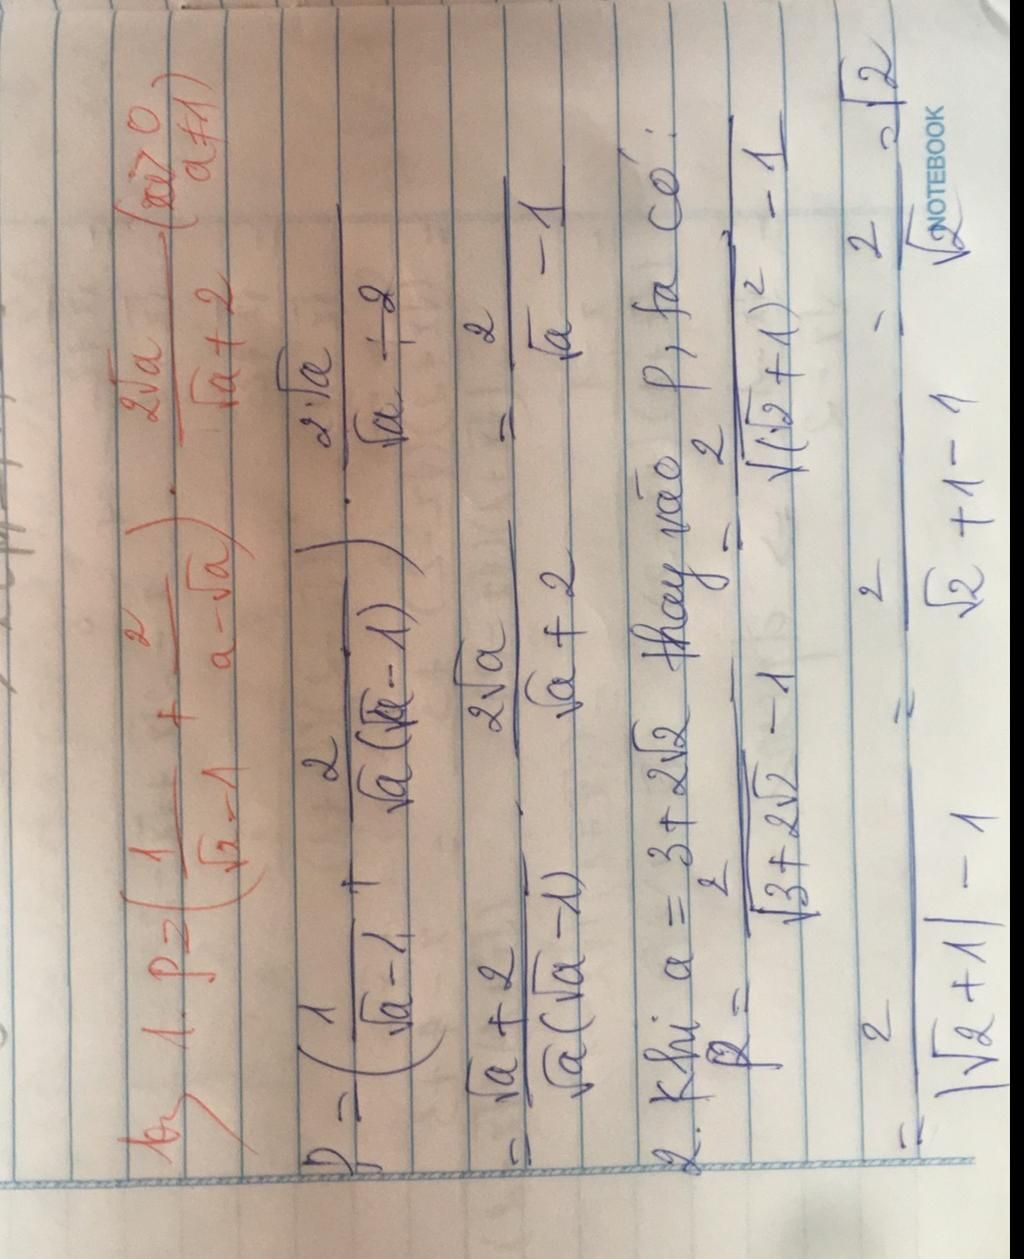 b, 1. P = ( 1/(√a - 1) + 2/(a - √a) ) . 2√a/(√a + 2) (a > 0, a ≠ 1)
P = ( 1/(√a - 1) + 2/(√a(√a - 1)) ) . 2.√a/(√a + 2)
= (√a + 2)/(√a(√a - 1)) . 2√a/(√a + 2) = 2/(√a - 1)
2. Khi a = 3 + 2√2 thay vào P, ta có:
P = 2/(√(3 + 2√2) - 1) = 2/(√((√2 + 1)²) - 1)
= 2/(|√2 + 1| - 1) = 2/(√2 + 1 - 1) = 2/√2 = √2
NOTEBOOK